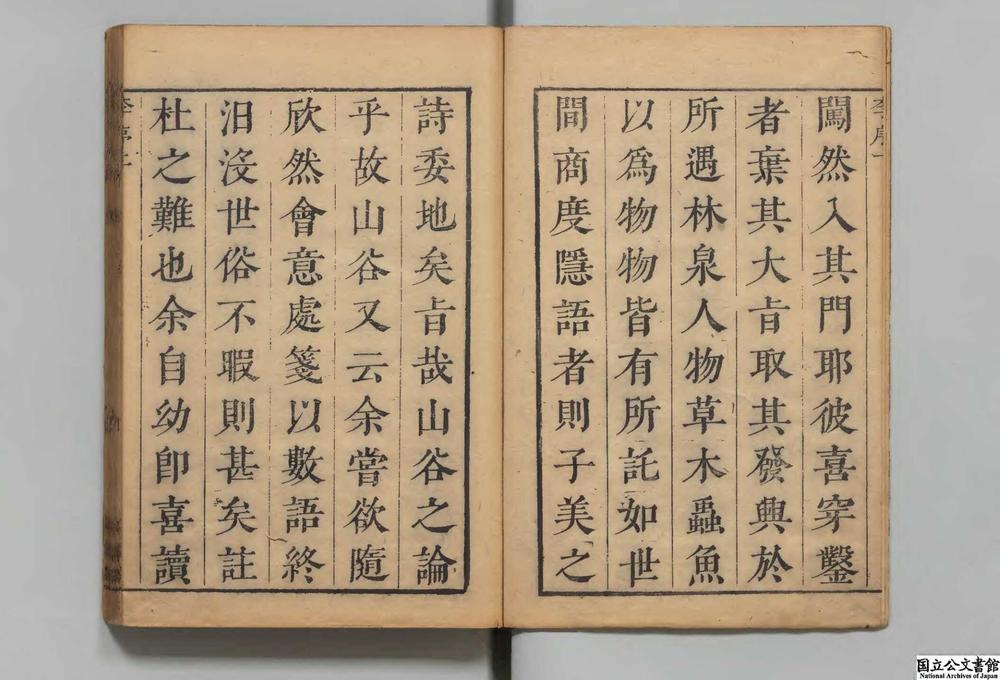 李序一
闖然入其門耶彼喜穿鑿
者棄其大㫖取其發興於
所遇林泉人物草木蟲魚
以爲物物皆有所託如世
間商度隱語者則子美之
詩委地矣㫖哉山谷之論
乎故山谷又云余嘗欲隨
欣然會意處箋以數語終
汨沒世俗不暇則甚矣註
杜之難也余自幼卽喜讀
李序二
国立公文書館
National Archives of Japan